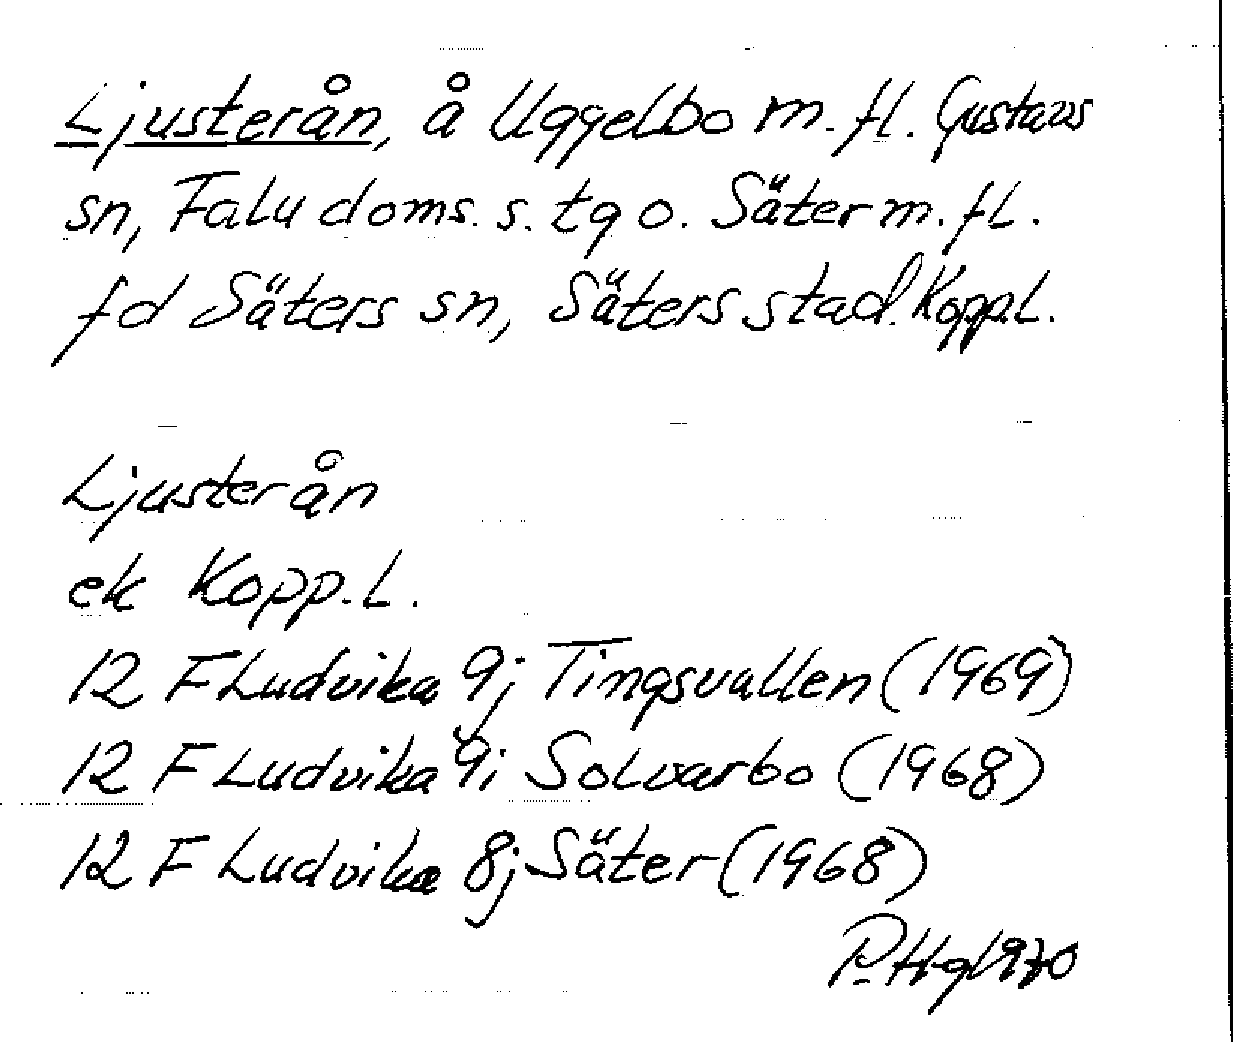 Ljusterån, å Uggelbo m.fl. Gustavs
sn, Falu doms. s. tg o. Säter m.fl.
fd Säters sn, Säters stad. Kopp.L.
Ljusterån
ek Kopp.L.
12 F Ludvika 9j Tingsvallen (1969)
12 F Ludvika 9i Solvarbo (1968)
12 F Ludvika 8j Säter (1968)
P. Hg 1970